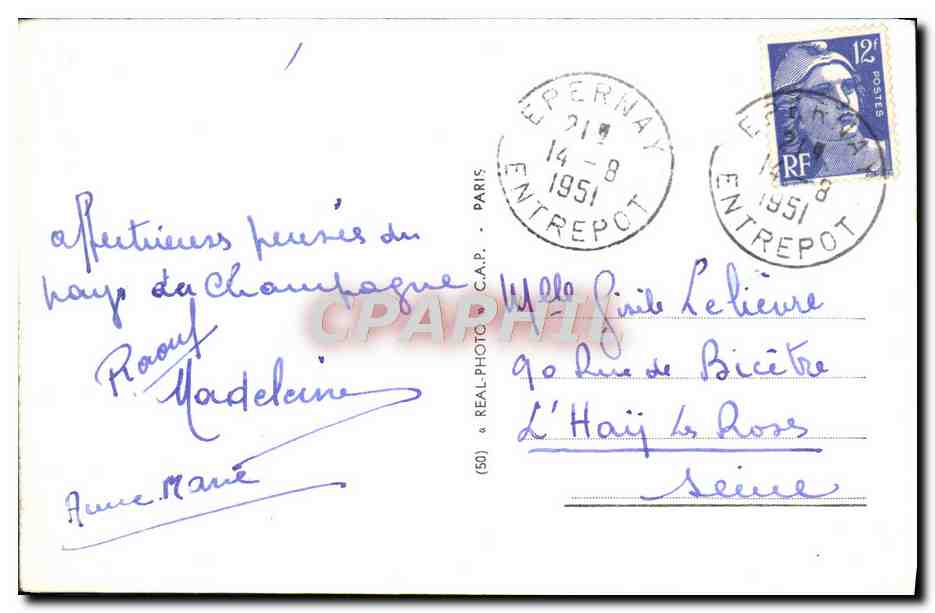 affectueuses pensées du
pays du Champagne
Raouf
Madeleine
Anne Marie
(50) « REAL-PHOTO » C.A.P. - PARIS
EPERNAY
21H
14 - 8
1951
ENTREPOT
12F
POSTES
RF
EPERNAY
21H
14 - 8
1951
ENTREPOT
Mlle Gisèle Lelièvre
90 Rue de Bicêtre
L'Haÿ les Roses
Seine
CPAPHIL